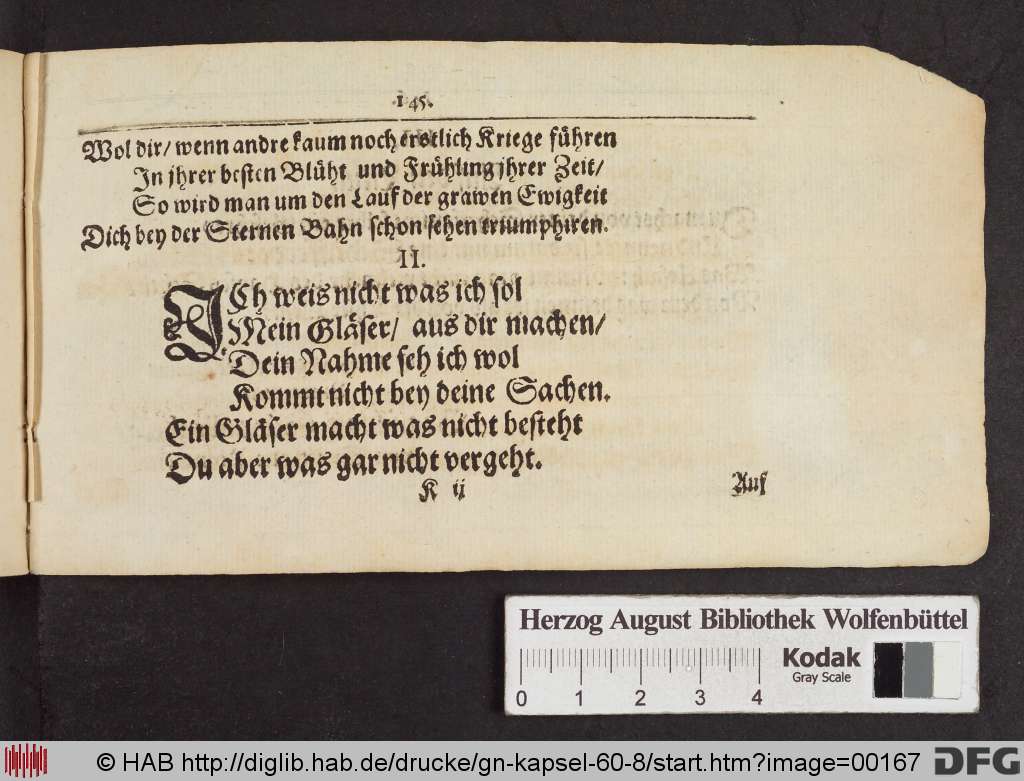 145.
Wol dir/ wenn andre kaum noch erstlich Kriege führen
In jhrer besten Blüht und Frühling jhrer Zeit/
So wird man um den Lauf der grawen Ewigkeit
Dich bey der Sternen Bahn schon sehen triumphiren.
II.
ICh weis nicht was ich sol
Mein Gläser/ aus dir machen/
Dein Nahme seh ich wol
Kommt nicht bey deine Sachen.
Ein Gläser macht was nicht besteht
Du aber was gar nicht vergeht.
K ij
Auf
Herzog August Bibliothek Wolfenbüttel
Kodak
Gray Scale
0 1 2 3 4
© HAB http://diglib.hab.de/drucke/gn-kapsel-60-8/start.htm?image=00167
DFG